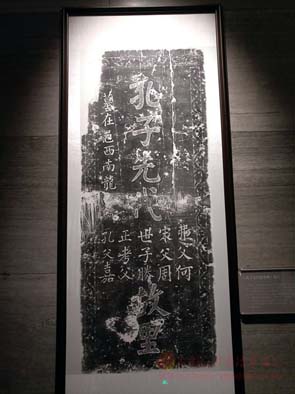 孔子先代故
弗父何
宋父周
世子勝
正考父
孔父嘉
墓在邑西南龍